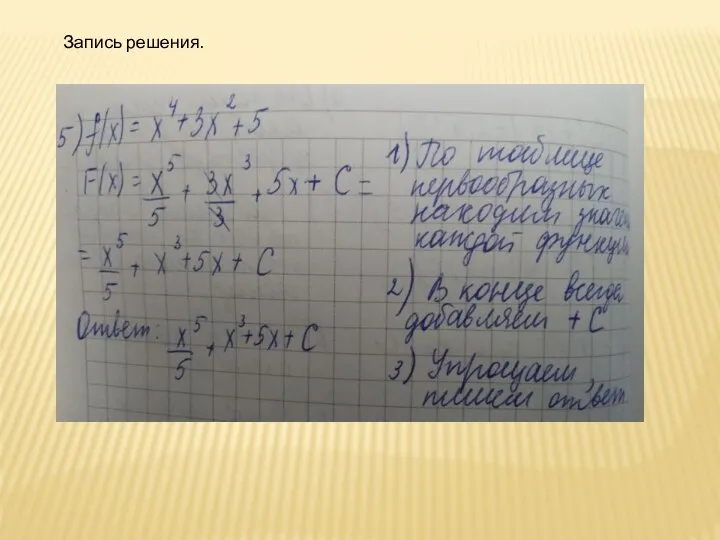 Запись решения.
5) f(x) = x⁴ + 3x² + 5
F(x) = x⁵/5 + 3x³/3 + 5x + C =
= x⁵/5 + x³ + 5x + C
Ответ: x⁵/5 + x³ + 5x + C
1) По таблице
первообразных
находим
каждой
2) В конце всегда
добавляем + C
3) Упрощаем
пишем ответ.